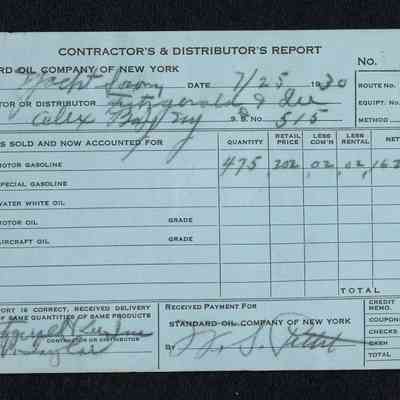 CONTRACTOR'S & DISTRIBUTOR'S REPORT
RD OIL COMPANY OF NEW YORK No.
Yacht DATE 7/25 1930 ROUTE No.
TOR OR DISTRIBUTOR Fitzgerald & Lee EQUIPT. No.
Alex Bay NY S. S. No. 515 METHOD
S SOLD AND NOW ACCOUNTED FOR QUANTITY RETAIL PRICE LESS COM'N LESS RENTAL NET
MOTOR GASOLINE 475 .202 .02 .02 .162
SPECIAL GASOLINE
WATER WHITE OIL
MOTOR OIL GRADE
AIRCRAFT OIL GRADE
TOTAL
PORT IS CORRECT, RECEIVED DELIVERY
OF SAME QUANTITIES OF SAME PRODUCTS
CONTRACTOR OR DISTRIBUTOR
RECEIVED PAYMENT FOR
STANDARD OIL COMPANY OF NEW YORK
BY
CREDIT MEMO.
COUPONS
CHECKS
CASH
TOTAL